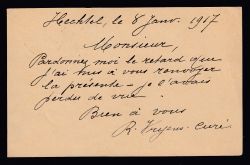 Hechtel, le 8 Janv. 1907
Monsieur,
Pardonnez moi le retard que
j'ai mis à vous renvoyer
la présente - je l'avais
perdue de vue
Bien à vous
R. curé.